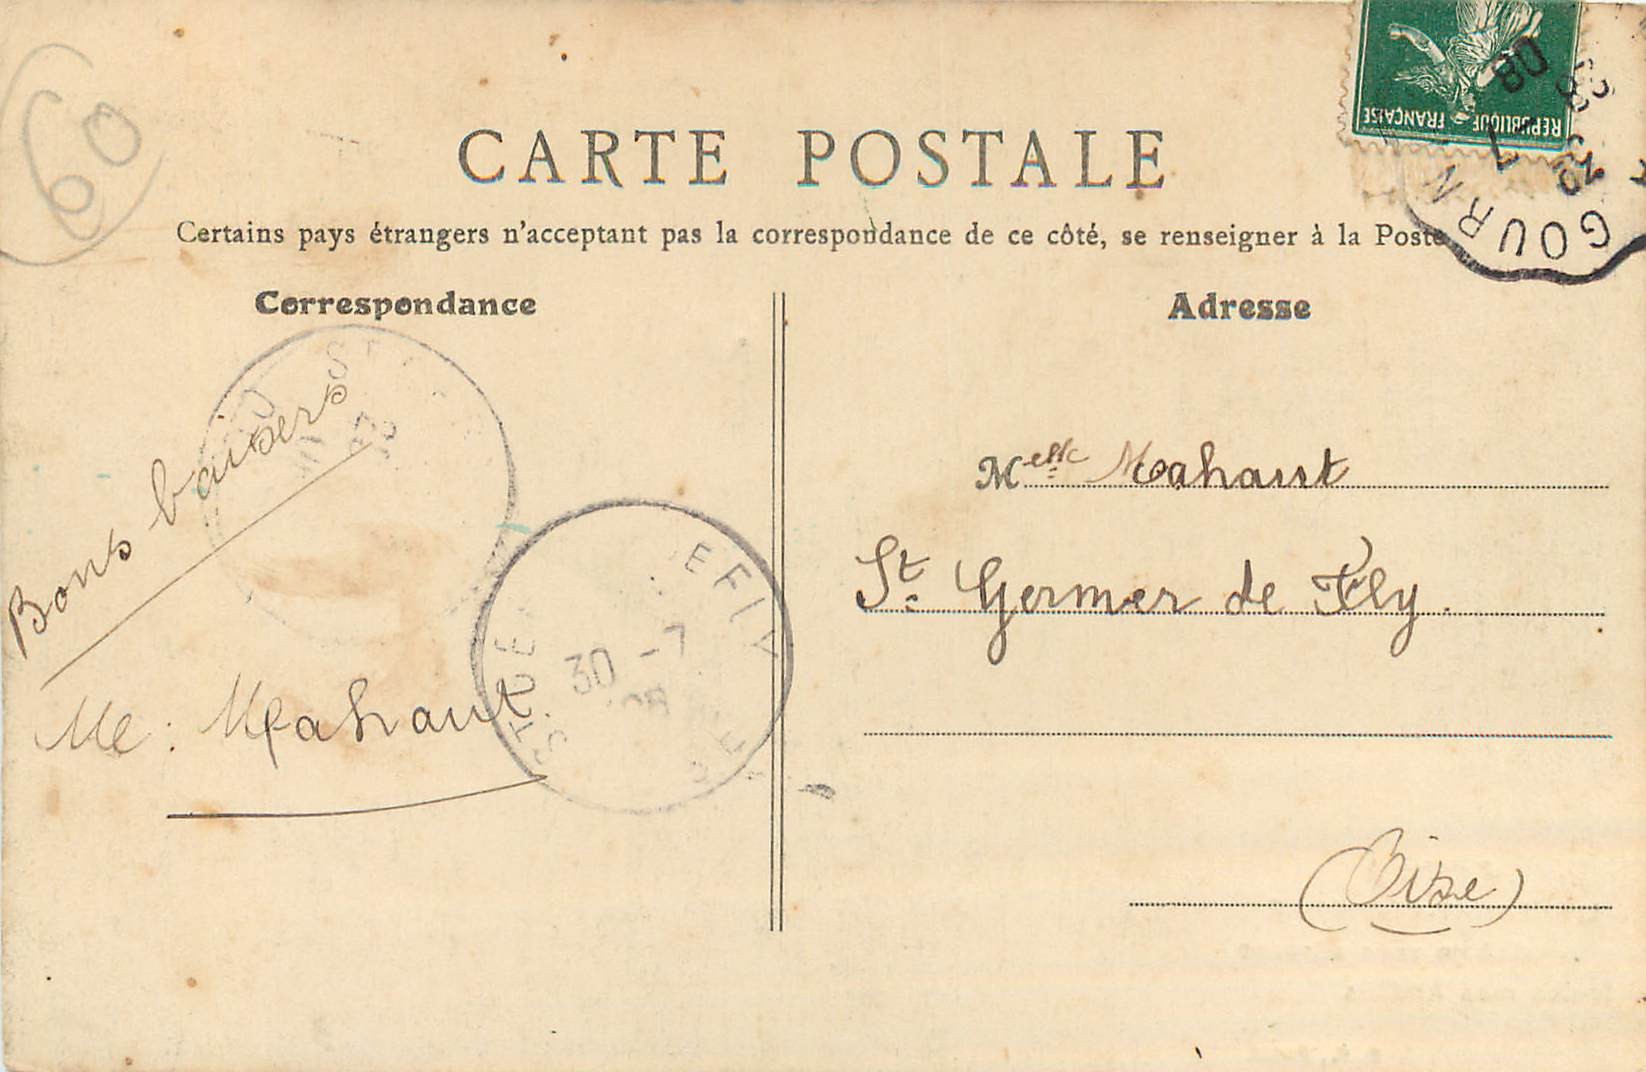 60
CARTE POSTALE
Certains pays étrangers n'acceptant pas la correspondance de ce côté, se renseigner à la Poste
REPUBLIQUE FRANÇAISE
7
08
GOURN
Correspondance
Adresse
Bons baisers
Me : Mahaut
30 -7
Melle Mahaut
St. Germer de Fly.
(Oise)